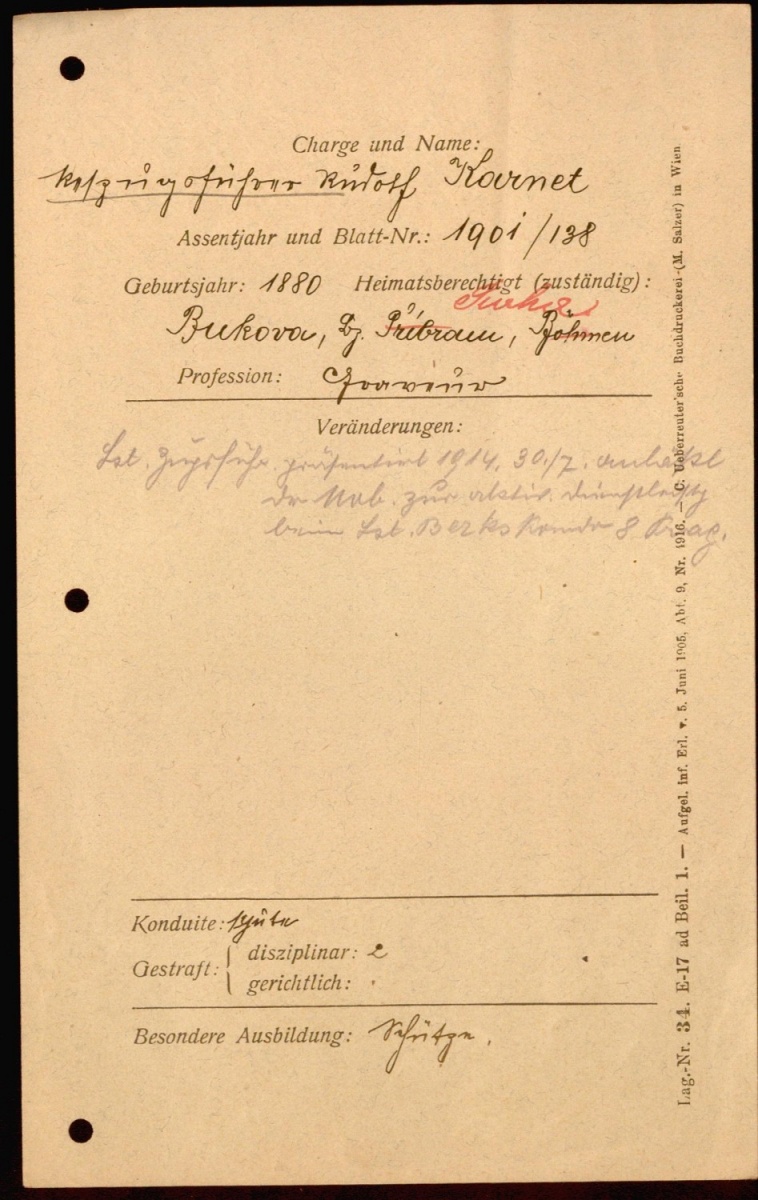 Charge und Name:
Reszugsführer Rudolf Karnet
Assentjahr und Blatt-Nr.: 1901/138
Geburtsjahr: 1880 Heimatsberechtigt (zuständig):
Bukova, Bz. Přibram, Böhmen
Profession: Graveur
Veränderungen:
Lst. Zugsführ. präsentiert 1914. 30./7. anlässl
der Mob. zur aktiv. Dienstleistg
beim Lst. Bezkskomdo 8 Prag.
Konduite: gute
Gestraft: disziplinar: 2
gerichtlich:
Besondere Ausbildung: Schütze.
Lag.-Nr. 34. E-17 ad Beil. 1. — Aufgel. inf. Erl. v. 5. Juni 1905, Abt. 9, Nr. 1916. — C. Ueberreuter'sche Buchdruckerei (M. Salzer) in Wien